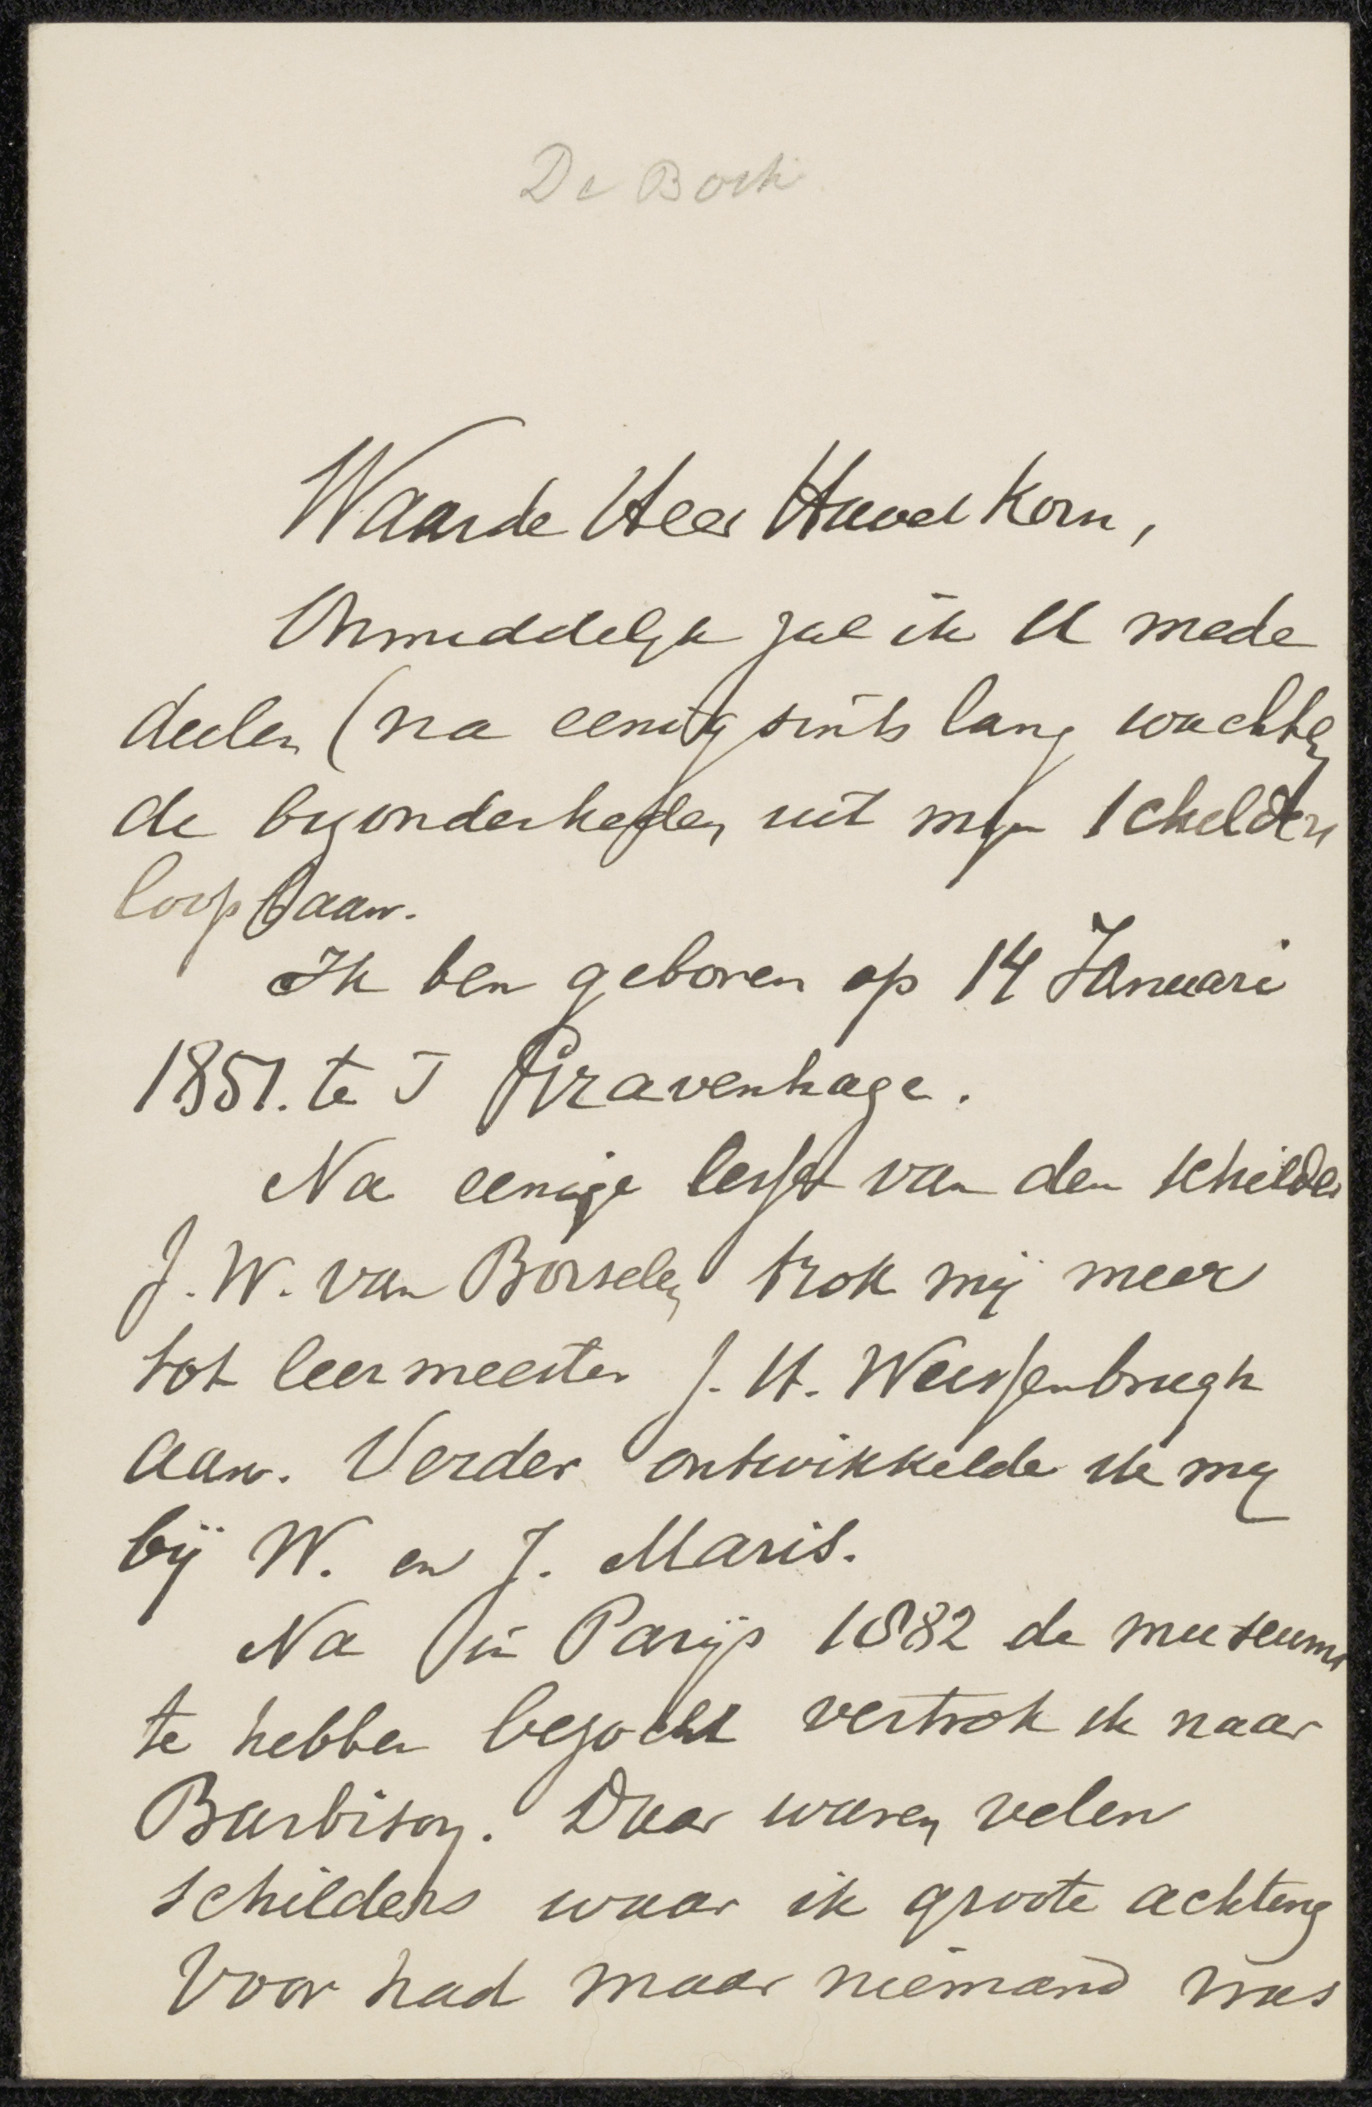 De Bock
Waarde Heer Haverkorn,
Onmiddelijk zal ik U mede
deelen (na eenigsints lang wachten
de byzonderheden uit mijn schilders
loopbaan.
Ik ben geboren op 14 Januari
1851. te S Gravenhage.
Na eenige lessen van den schilder
J. W. van Borselen trok mij meer
tot leermeester J. H. Weissenbrugh
aan. Verder ontwikkelde ik mij
bij W. en J. Maris.
Na in Parijs 1882 de museums
te hebben bezocht vertrok ik naar
Barbison. Daar waren velen
schilders waar ik groote achting
voor had maar niemand was